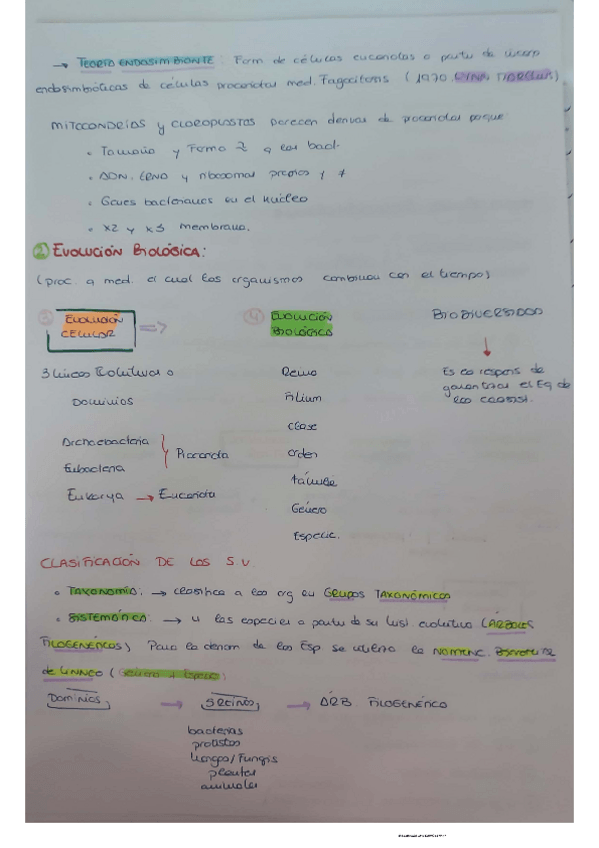 → TEORÍA ENDOSIMBIONTE: Form de células eucariotas a partir de incorp
endosimbióticas de células procariotas med. Fagocitosis (1970 LYNN MARGULIS)
MITOCONDRIAS y CLOROPLASTOS parecen derivar de procariotas porque:
• Tamaño y Forma ≈ a las bact.
• ADN, ERNO y ribosomas propios y ≠
• Genes bacterianos en el núcleo
• x2 y x3 membrana.
② EVOLUCIÓN BIOLÓGICA:
(proc. q med. el cual los organismos cambian con el tiempo)
③ EVOLUCIÓN CELULAR =>
3 líneas Evolutivas o
Dominios
Archaebacteria
Eubacteria
} Procariota
Eukarya → Eucariota
④ EVOLUCIÓN BIOLÓGICA
Reino
Filium
Clase
Orden
Familia
Género
Especie.
BIODIVERSIDAD
↓
Es la respons de
garantizar el Eq de
los ecosist.
CLASIFICACIÓN DE LOS S.V.
• TAXONOMÍA. → clasifica a los org en GRUPOS TAXONÓMICOS
• SISTEMÁTICA: → las especies a partir de su hist. evolutiva (ÁRBOLES
FILOGENÉTICOS) Para la denom de las Esp se utiliza la NOMENC. BINOMIAL
de LINNEO (Género y Especie)
Dominios, → 5 REINOS, → ÁRB. FILOGENÉTICO
bacterias
protistos
hongos/Fungis
plantas
animales